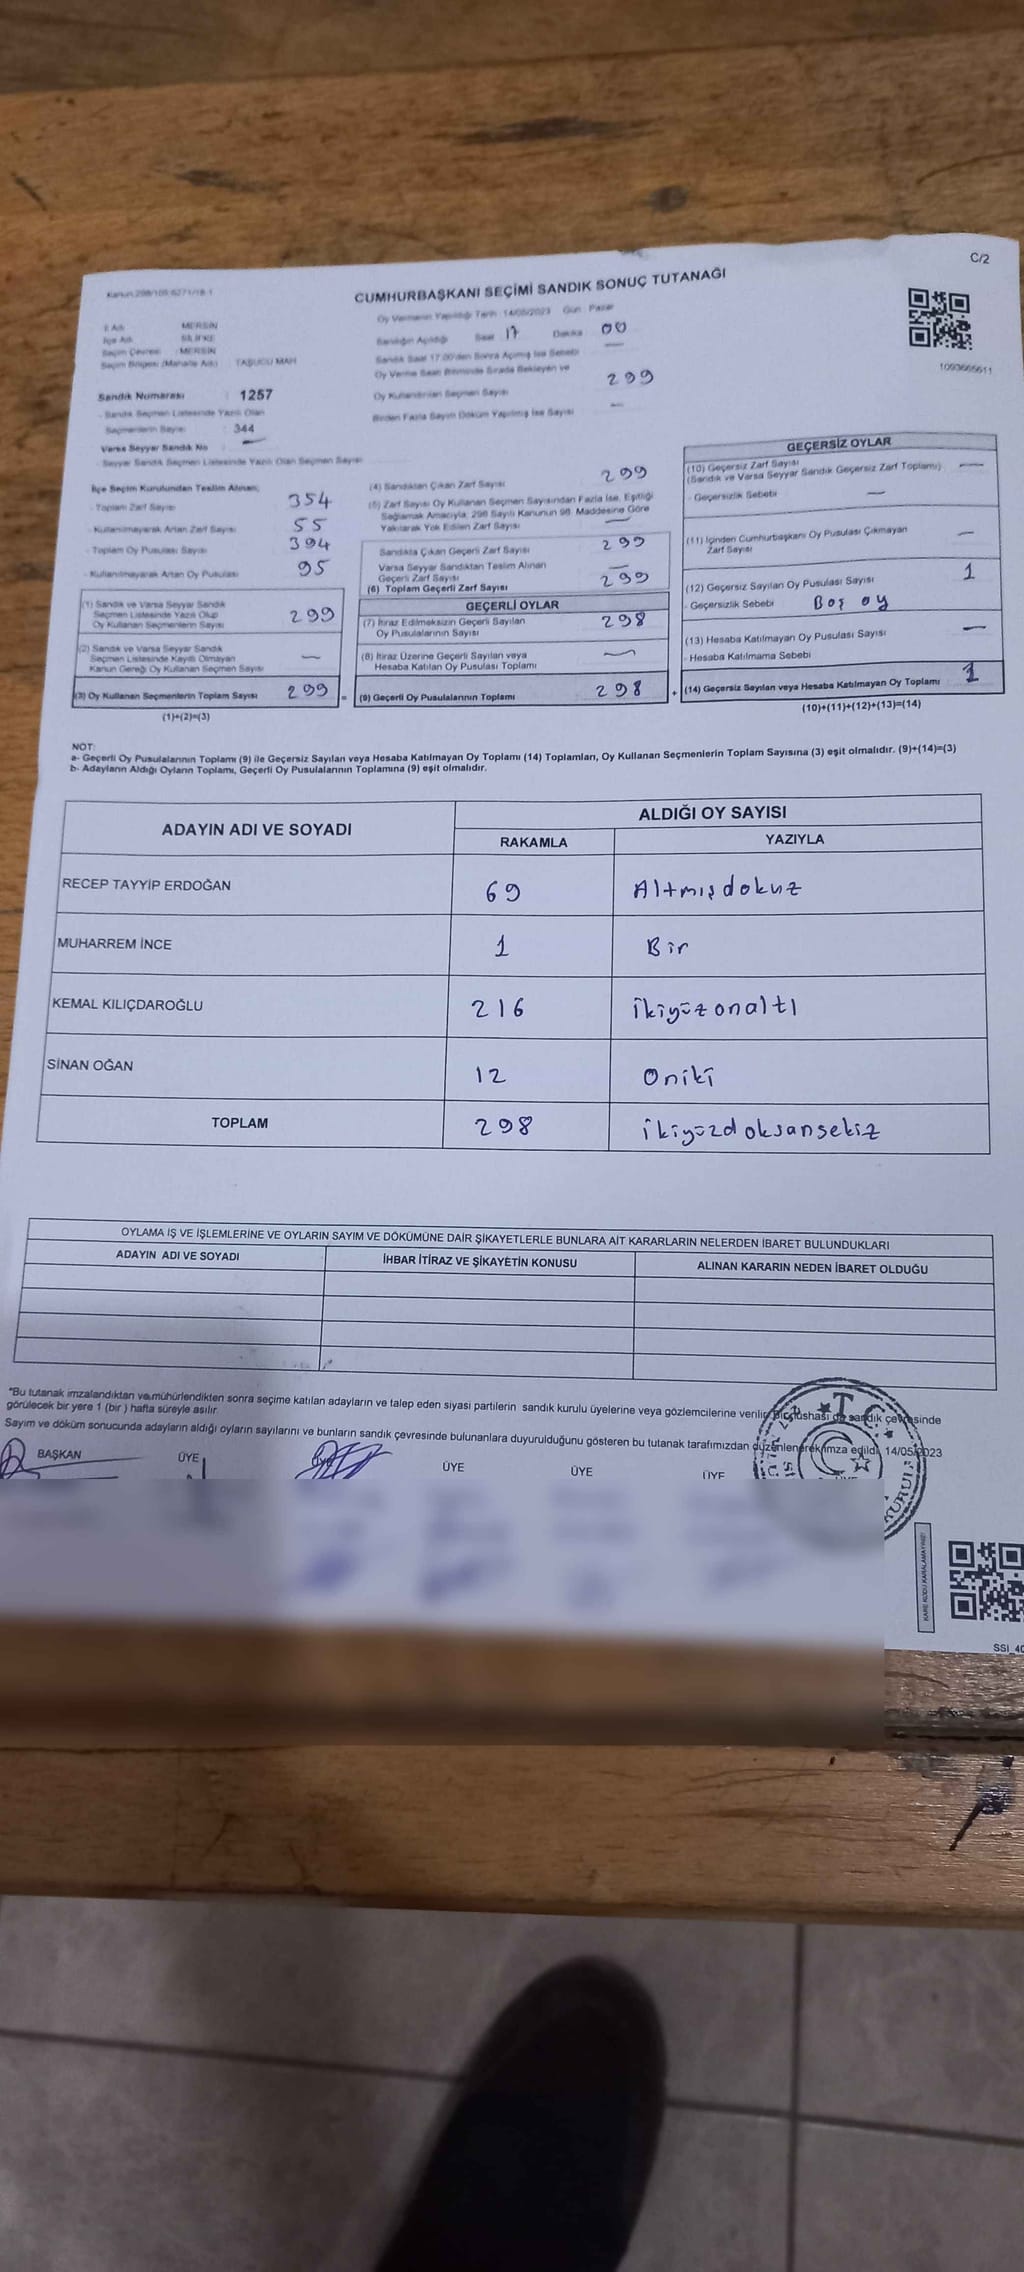 C/2
Kanun:298/105 6271/18-1
CUMHURBAŞKANI SEÇİMİ SANDIK SONUÇ TUTANAĞI
Oy Vermenin Yapıldığı Tarih : 14/05/2023 Gün : Pazar
İl Adı MERSİN
İlçe Adı SİLİFKE
Seçim Çevresi : MERSİN
Seçim Bölgesi (Mahalle Adı) : TAŞUCU MAH
Sandığın Açıldığı Saat 17 Dakika 00
Sandık Saat 17.00'den Sonra Açılmış İse Sebebi —
Oy Verme Saati Bitiminde Sırada Bekleyen ve
Oy Kullandırılan Seçmen Sayısı 299
Birden Fazla Sayım Döküm Yapılmış İse Sayısı —
1093665611
Sandık Numarası : 1257
- Sandık Seçmen Listesinde Yazılı Olan
Seçmenlerin Sayısı : 344
Varsa Seyyar Sandık No : —
- Seyyar Sandık Seçmen Listesinde Yazılı Olan Seçmen Sayısı
İlçe Seçim Kurulundan Teslim Alınan;
- Toplam Zarf Sayısı 354
- Kullanılmayarak Artan Zarf Sayısı 55
- Toplam Oy Pusulası Sayısı 394
- Kullanılmayarak Artan Oy Pusulası 95
(1) Sandık ve Varsa Seyyar Sandık
Seçmen Listesinde Yazılı Olup
Oy Kullanan Seçmenlerin Sayısı 299
(2) Sandık ve Varsa Seyyar Sandık
Seçmen Listesinde Kayıtlı Olmayan
Kanun Gereği Oy Kullanan Seçmen Sayısı —
(3) Oy Kullanan Seçmenlerin Toplam Sayısı 299 =
(1)+(2)=(3)
(4) Sandıktan Çıkan Zarf Sayısı 299
(5) Zarf Sayısı Oy Kullanan Seçmen Sayısından Fazla İse, Eşitliği
Sağlamak Amacıyla, 298 Sayılı Kanunun 98. Maddesine Göre
Yakılarak Yok Edilen Zarf Sayısı —
Sandıkta Çıkan Geçerli Zarf Sayısı 299
Varsa Seyyar Sandıktan Teslim Alınan
Geçerli Zarf Sayısı —
(6) Toplam Geçerli Zarf Sayısı 299
GEÇERLİ OYLAR
(7) İtiraz Edilmeksizin Geçerli Sayılan
Oy Pusulalarının Sayısı 298
(8) İtiraz Üzerine Geçerli Sayılan veya
Hesaba Katılan Oy Pusulası Toplamı —
(9) Geçerli Oy Pusulalarının Toplamı 298 +
GEÇERSİZ OYLAR
(10) Geçersiz Zarf Sayısı
(Sandık ve Varsa Seyyar Sandık Geçersiz Zarf Toplamı) —
- Geçersizlik Sebebi —
(11) İçinden Cumhurbaşkanı Oy Pusulası Çıkmayan
Zarf Sayısı —
(12) Geçersiz Sayılan Oy Pusulası Sayısı 1
- Geçersizlik Sebebi Boş oy
(13) Hesaba Katılmayan Oy Pusulası Sayısı —
- Hesaba Katılmama Sebebi
(14) Geçersiz Sayılan veya Hesaba Katılmayan Oy Toplamı 1
(10)+(11)+(12)+(13)=(14)
NOT:
a- Geçerli Oy Pusulalarının Toplamı (9) ile Geçersiz Sayılan veya Hesaba Katılmayan Oy Toplamı (14) Toplamları, Oy Kullanan Seçmenlerin Toplam Sayısına (3) eşit olmalıdır. (9)+(14)=(3)
b- Adayların Aldığı Oyların Toplamı, Geçerli Oy Pusulalarının Toplamına (9) eşit olmalıdır.
ADAYIN ADI VE SOYADI ALDIĞI OY SAYISI
RAKAMLA YAZIYLA
RECEP TAYYİP ERDOĞAN 69 Altmışdokuz
MUHARREM İNCE 1 Bir
KEMAL KILIÇDAROĞLU 216 ikiyüzonaltı
SİNAN OĞAN 12 Oniki
TOPLAM 298 ikiyüzdoksansekiz
OYLAMA İŞ VE İŞLEMLERİNE VE OYLARIN SAYIM VE DÖKÜMÜNE DAİR ŞİKAYETLERLE BUNLARA AİT KARARLARIN NELERDEN İBARET BULUNDUKLARI
ADAYIN ADI VE SOYADI İHBAR İTİRAZ VE ŞİKAYETİN KONUSU ALINAN KARARIN NEDEN İBARET OLDUĞU
"Bu tutanak imzalandıktan ve mühürlendikten sonra seçime katılan adayların ve talep eden siyasi partilerin sandık kurulu üyelerine veya gözlemcilerine verilir. Bir nüshası da sandık çevresinde
görülecek bir yere 1 (bir ) hafta süreyle asılır.
Sayım ve döküm sonucunda adayların aldığı oyların sayılarını ve bunların sandık çevresinde bulunanlara duyurulduğunu gösteren bu tutanak tarafımızdan düzenlenerek imza edildi. 14/05/2023
BAŞKAN ÜYE ÜYE ÜYE ÜYE ÜYE
T.C.
KARE KODU KARALAMAYINIZ!